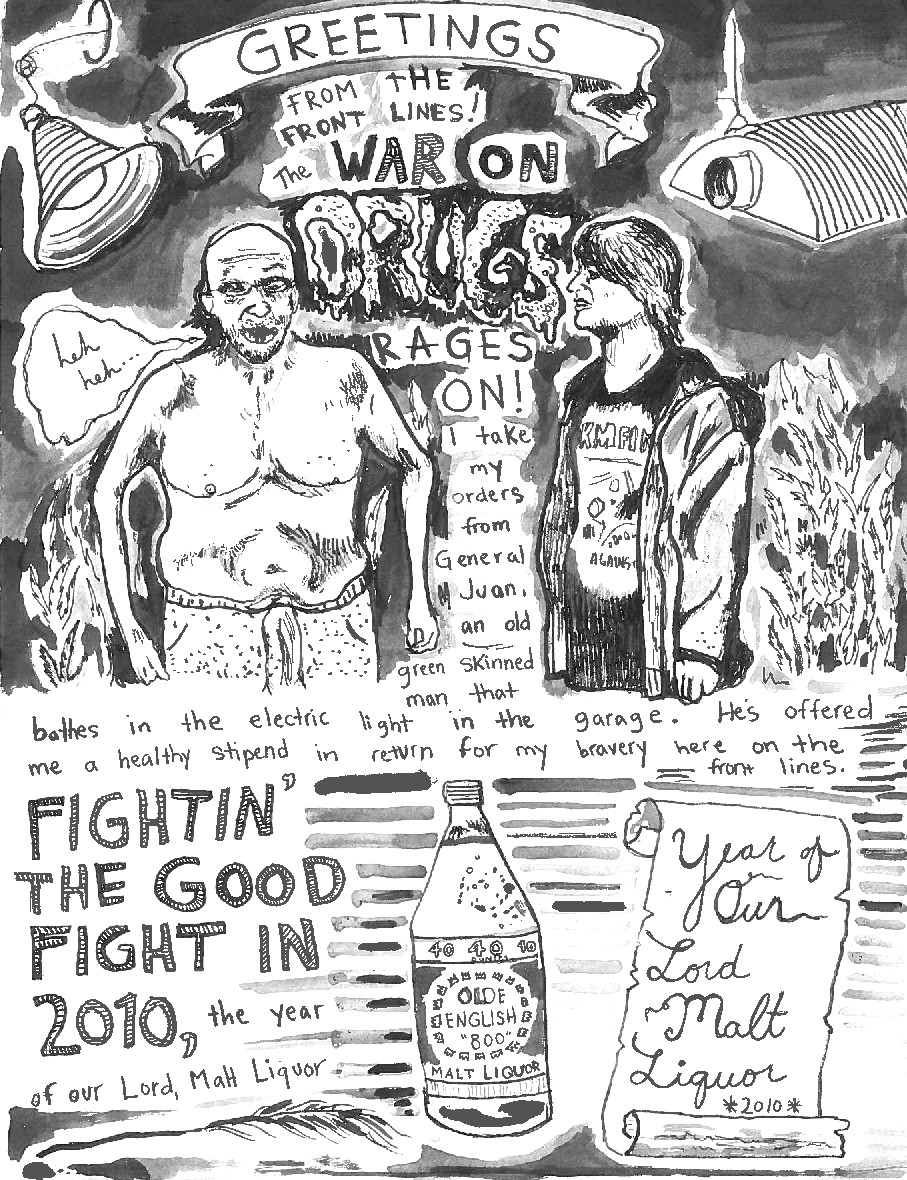 GREETINGS
FROM THE
FRONT LINES!
The WAR ON
DRUGS
RAGES
ON!
heh
heh...
I take
my
orders
from
General
Juan,
an old
green skinned
man that
bathes in the electric light in the garage. He's offered
me a healthy stipend in return for my bravery here on the
front lines.
KMFD
AGAINS
FIGHTIN'
THE GOOD
FIGHT IN
2010, the year
of our Lord, Malt Liquor
40 40 40
OLDE
ENGLISH
"800"
MALT LIQUOR
Year of
Our
Lord
Malt
Liquor
*2010*